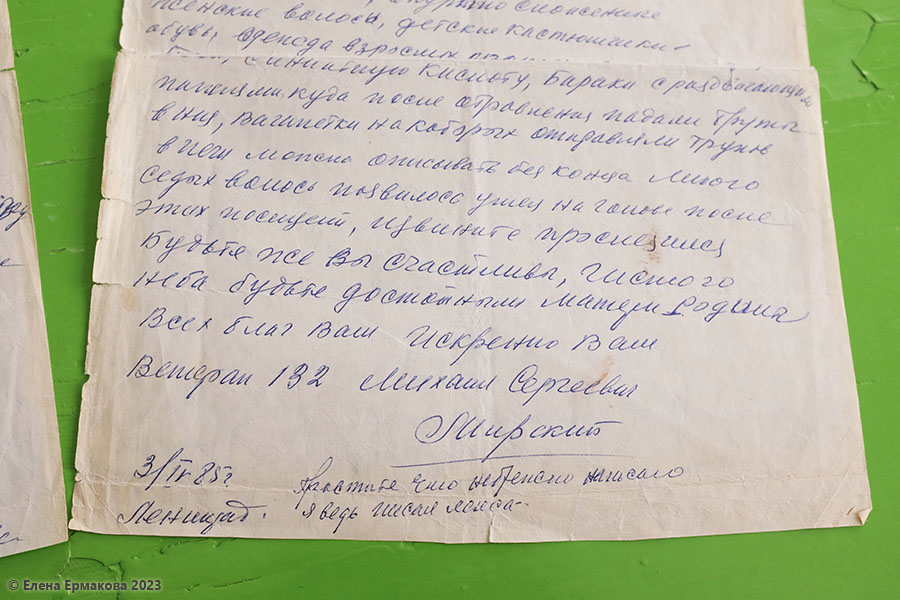 женские волосы, детские костюмчики-
обувь, одежда взрослых
синитную кислоту, бараки с раздвигающими
панелями, куда после отравления падали трупы
в низ, вагонетки на которых отправляли трупов
в печи можно описывать без конца много
седых волос появилось у меня на голове после
этих посещений, извините прослезился
Будьте же Вы счастливы, чистого
неба будьте достойными матери Родина
Всех благ Вам Искренно Ваш
Ветеран 132 Михаил Сергеевич
Мирский
3/IV 85г Простите что небрежно написано
Ленинград. я ведь писал лёжа-
© Елена Ермакова 2023